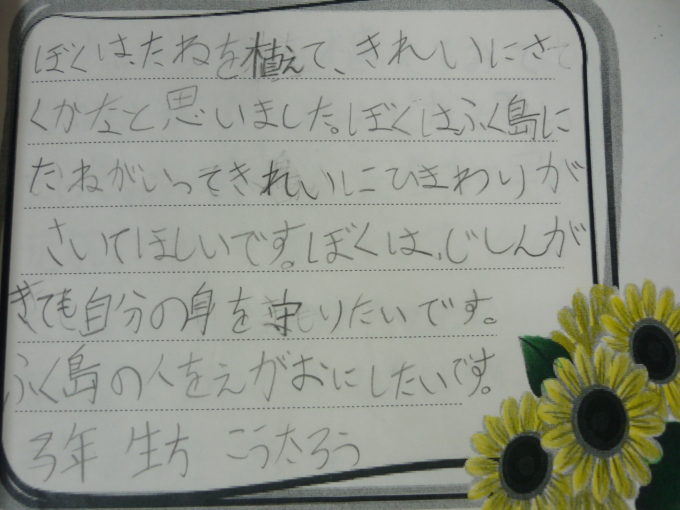 ぼくは、たねを植えて、きれいにさ
くかなと思いました。ぼくは、ふく島に
たねがいってきれいにひまわりが
さいてほしいです。ぼくは、じしんが
きても自分の身を守りたいです。
ふく島の人をえがおにしたいです。
3年 生方 こうたろう